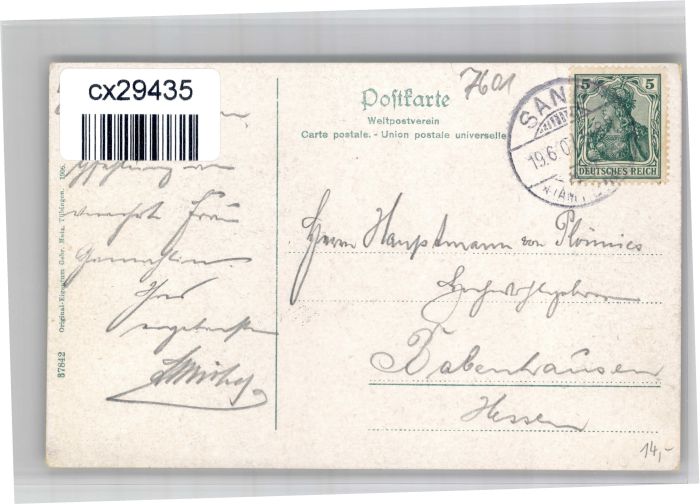 cx29435
7601
Postkarte
Weltpostverein
Carte postale. - Union postale universelle
SAN
19.6.0
5 5
DEUTSCHES REICH
Empfehlung an
verehrte Frau
Gemahlin.
Ihr
ergebenster
Herrn Hauptmann von Plönnies
Hochwohlgeboren
Babenhausen
Hessen
14,-
37842 Original-Eigentum Gebr. Metz, Tübingen. 1906